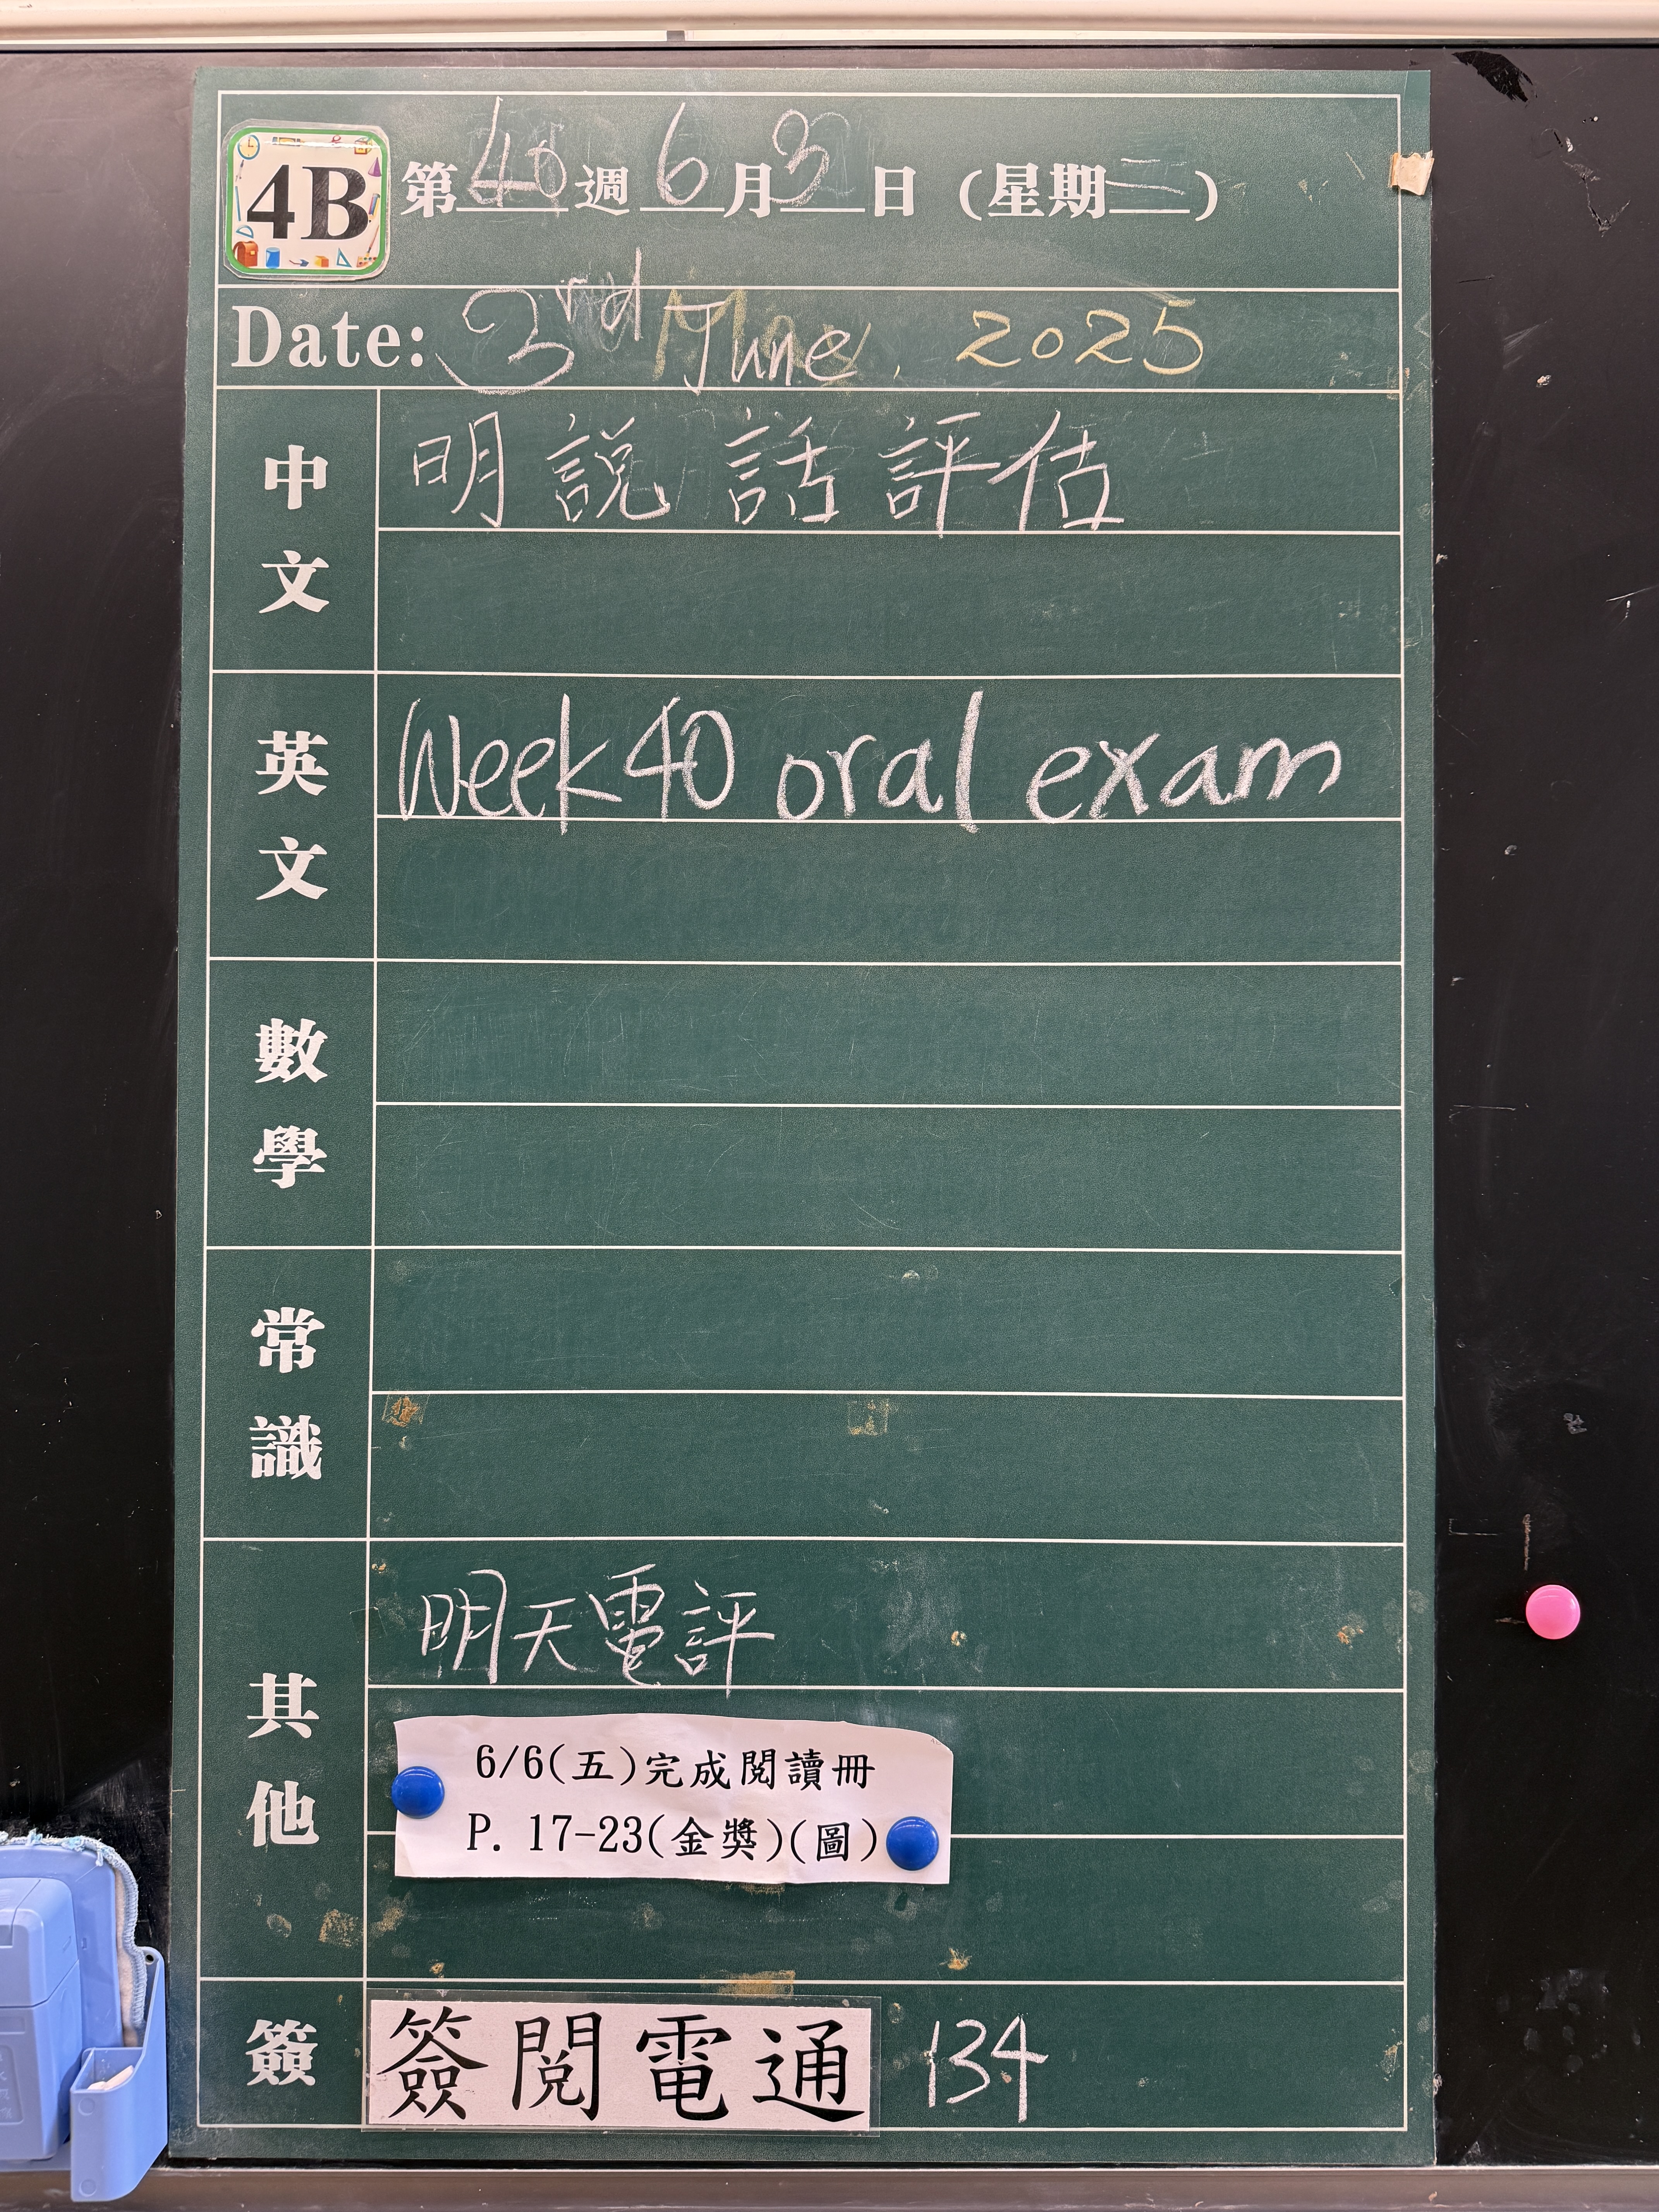 4B 第40週6月3日(星期二)
Date: 3rd June, 2025
中文 明說話評估
英文 Week 40 oral exam
數學
常識
其他 明天電評
6/6(五)完成閱讀冊
P. 17-23(金獎)(圖)
簽 簽閱電通 134